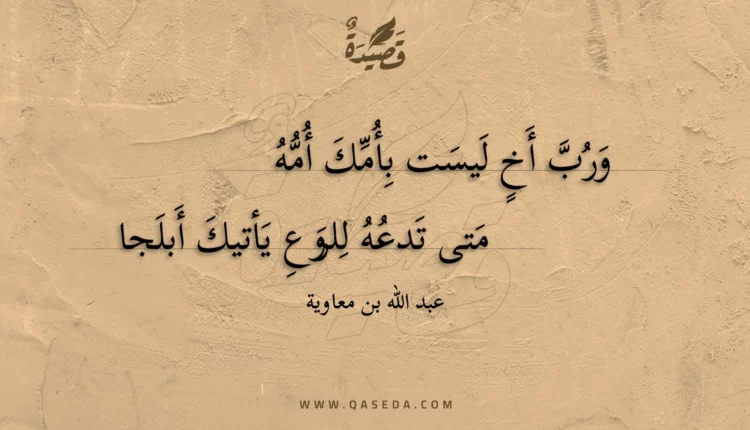 قَصِيْدَةٌ
وَرُبَّ أَخٍ لَيسَت بِأُمِّكَ أُمُّهُ
مَتى تَدعُهُ لِلرَوَعِ يَأتيكَ أَبلَجا
عبد الله بن معاوية
WWW.QASEDA.COM